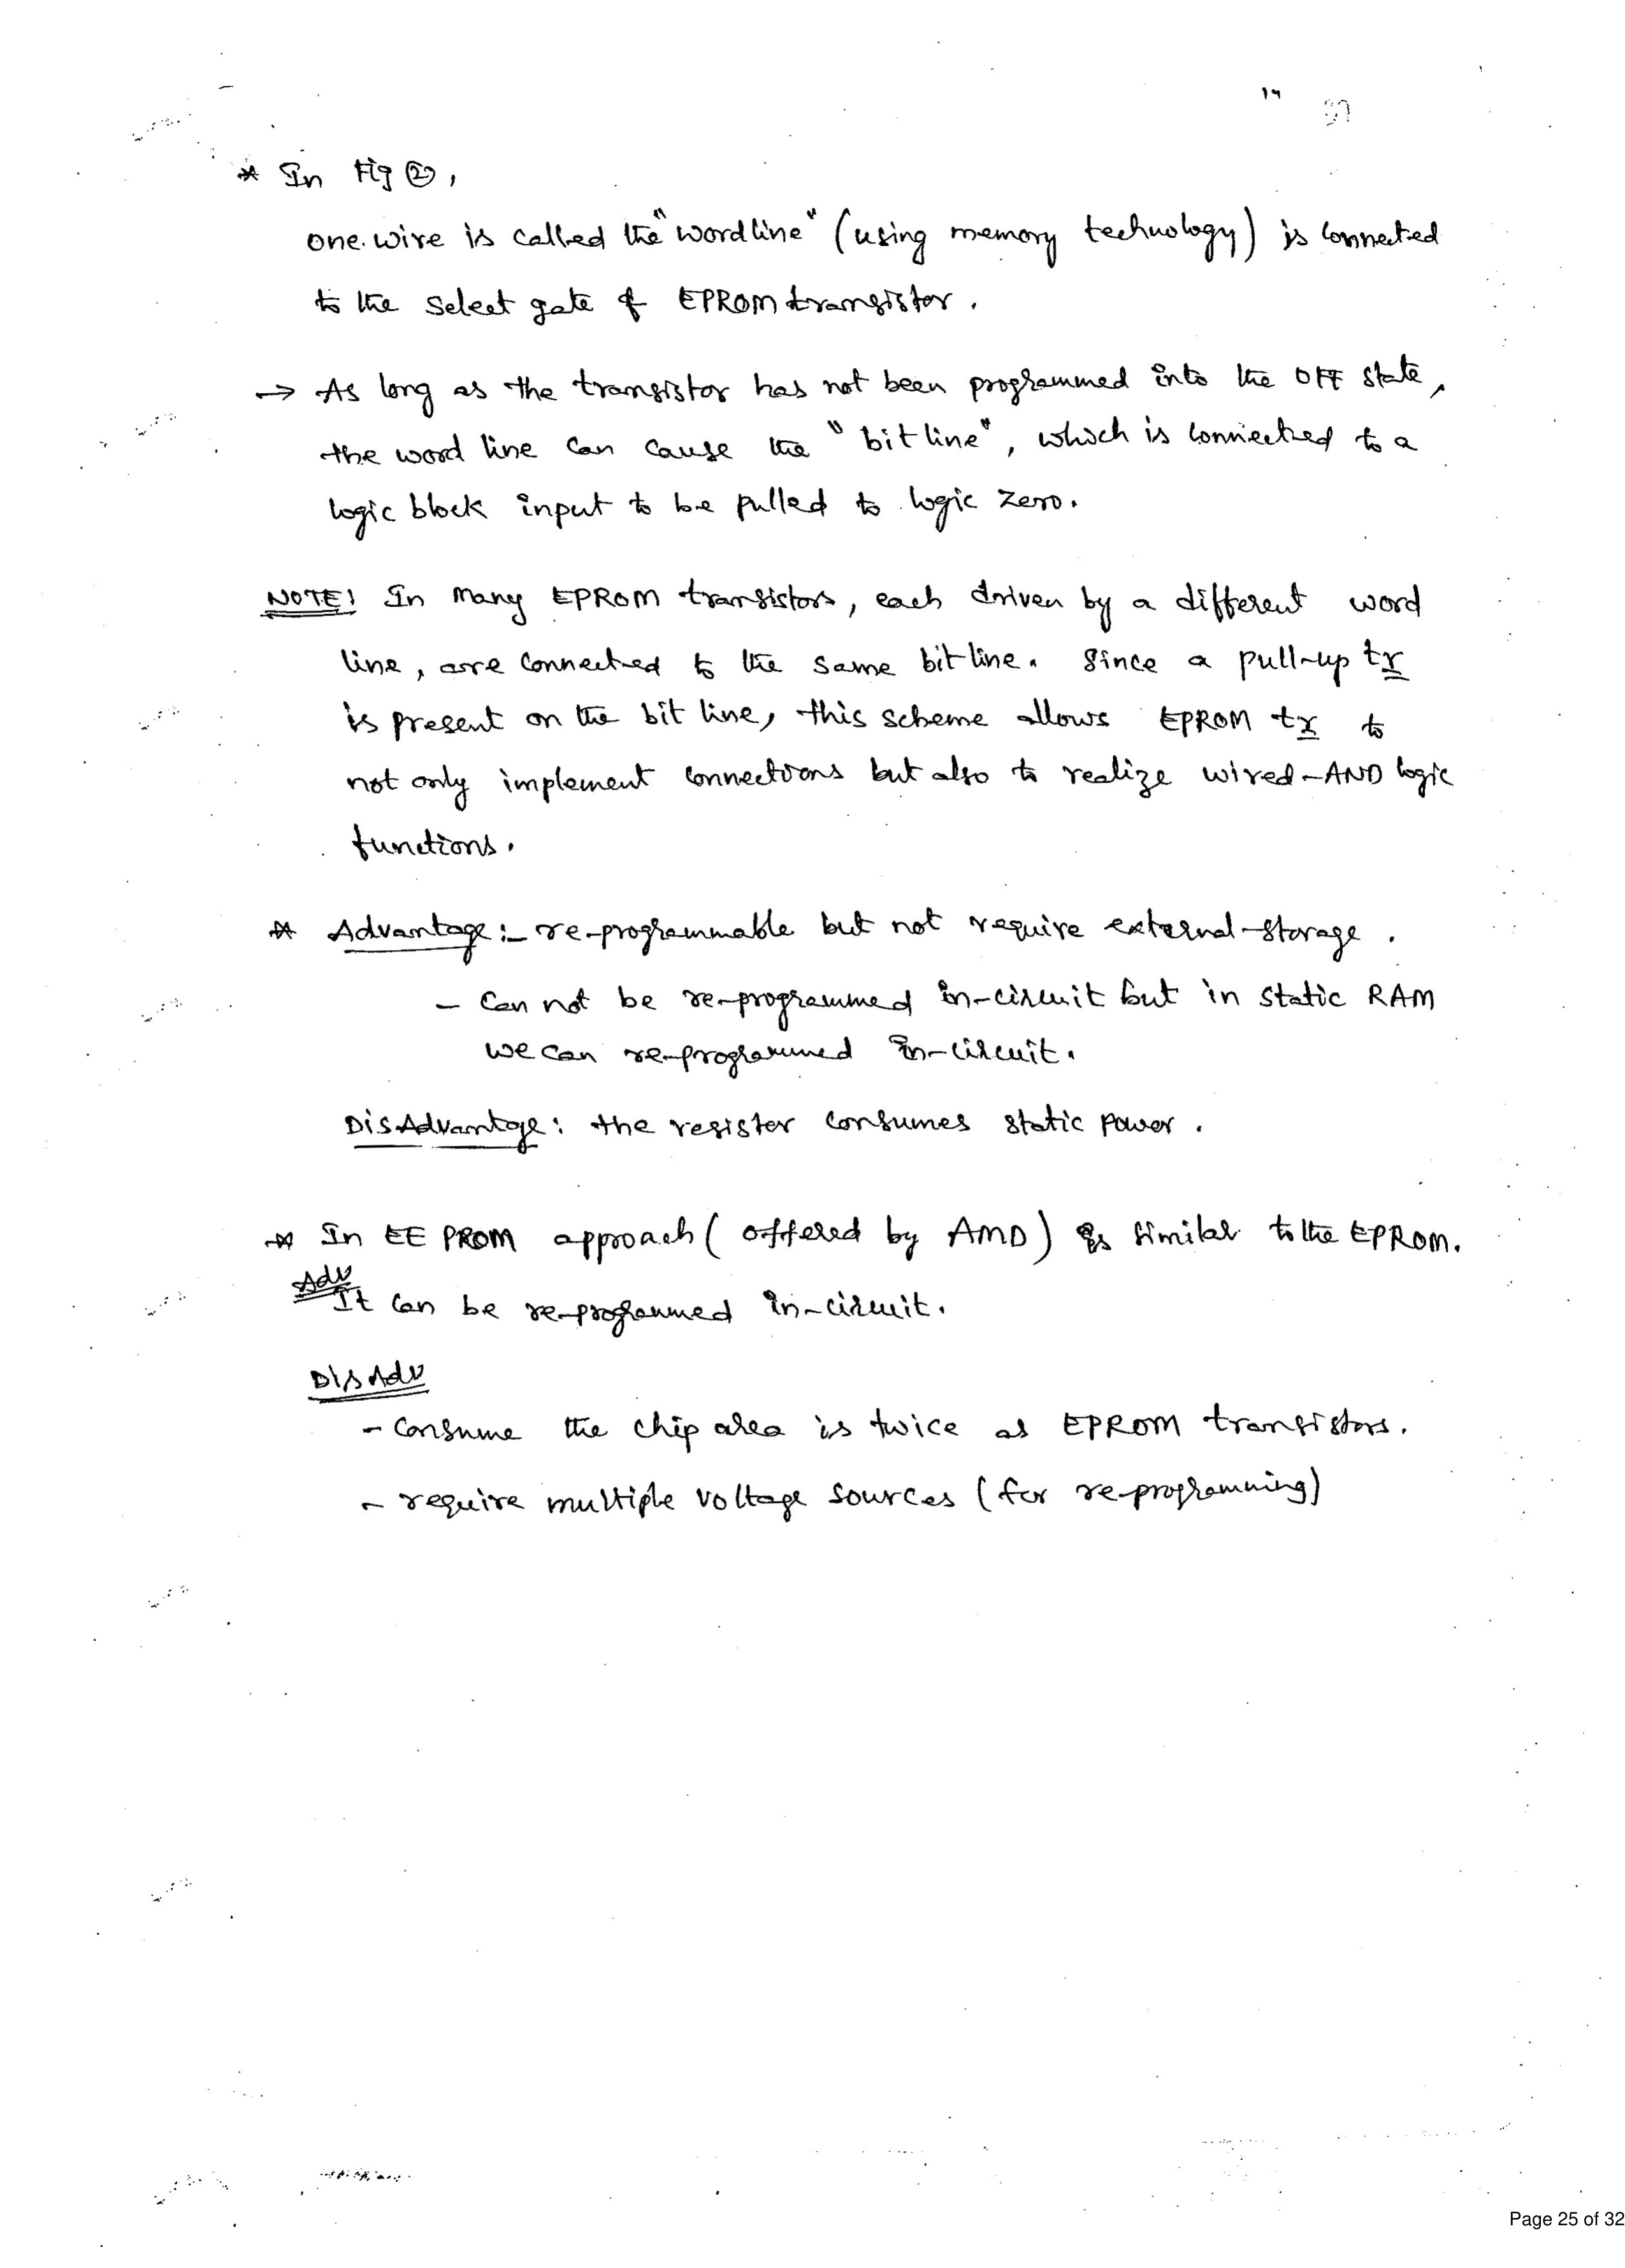 19
* In Fig ②,
one wire is called the "wordline" (using memory technology) is connected
to the select gate of EPROM transistor.
→ As long as the transistor has not been programmed into the OFF state,
the word line can cause the "bit line", which is connected to a
logic block input to be pulled to logic zero.
NOTE! In many EPROM transistors, each driven by a different word
line, are connected to the same bit line. Since a pull-up tr
is present on the bit line, this scheme allows EPROM tr to
not only implement connections but also to realize wired-AND logic
functions.
* Advantage :- re-programmable but not require external storage.
- Can not be re-programmed in-circuit but in static RAM
we can re-programmed in-circuit.
DisAdvantage: the resister consumes static power.
* In EE PROM approach (offered by AMD) is similar to the EPROM.
Adv
It can be re-programmed in-circuit.
DisAdv
- Consume the chip area is twice as EPROM transistors.
- require multiple voltage sources (for re-programming)
Page 25 of 32